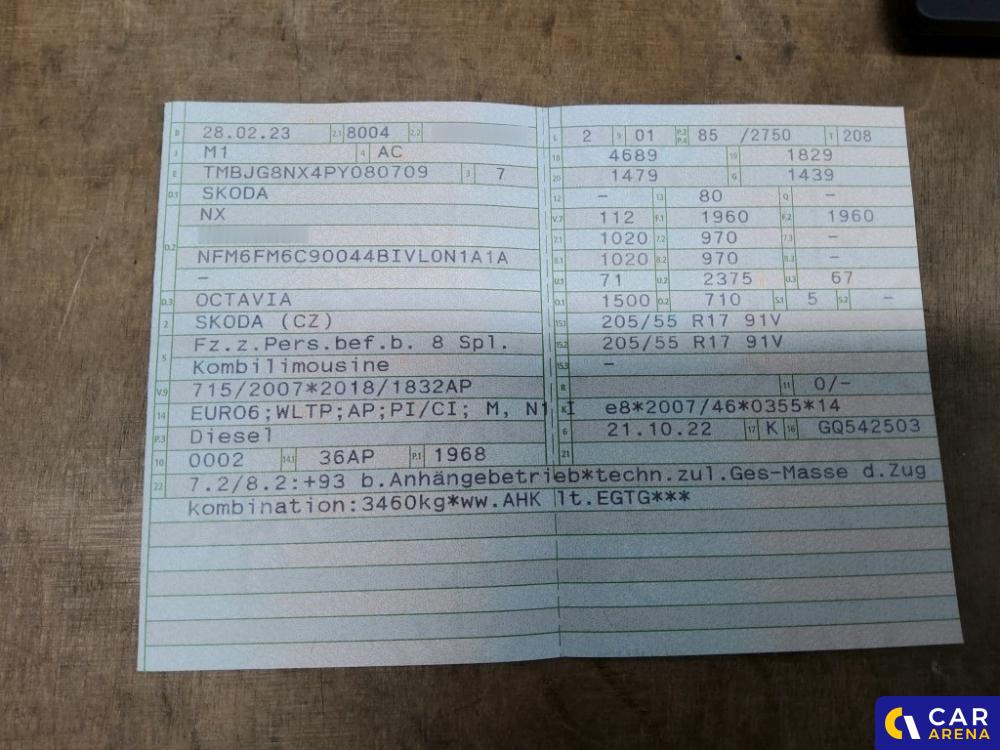 B 28.02.23 2.1 8004 2.2
J M1 4 AC
E TMBJG8NX4PY080709 3 7
D.1 SKODA
NX
D.2
NFM6FM6C90044BIVL0N1A1A
-
D.3 OCTAVIA
2 SKODA (CZ)
5 Fz.z.Pers.bef.b. 8 Spl.
Kombilimousine
V.9 715/2007*2018/1832AP
14 EURO6;WLTP;AP;PI/CI; M, N1 I
P.3 Diesel
10 0002 14.1 36AP P.1 1968
L 2 9 01 P.2 P.4 85 /2750 T 208
18 4689 19 1829
20 1479 G 1439
12 - 13 80 Q -
V.7 112 F.1 1960 F.2 1960
7.1 1020 7.2 970 7.3 -
8.1 1020 8.2 970 8.3 -
U.1 71 U.2 2375 U.3 67
O.1 1500 O.2 710 S.1 5 S.2 -
15.1 205/55 R17 91V
15.2 205/55 R17 91V
15.3 -
R 11 0/-
K e8*2007/46*0355*14
6 21.10.22 17 K 16 GQ542503
21
22 7.2/8.2:+93 b.Anhängebetrieb*techn.zul.Ges-Masse d.Zug
kombination:3460kg*ww.AHK lt.EGTG***
CAR
ARENA